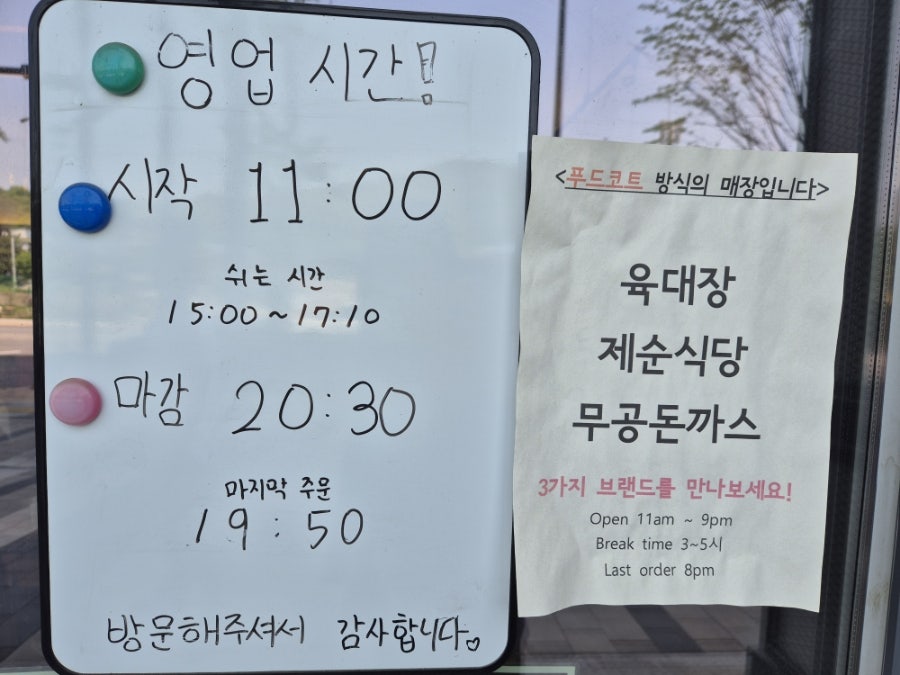 영업 시간!
시작 11:00
쉬는 시간
15:00~17:10
마감 20:30
마지막 주문
19:50
방문해주셔서 감사합니다
<푸드코트 방식의 매장입니다>
육대장
제순식당
무공돈까스
3가지 브랜드를 만나보세요!
Open 11am ~ 9pm
Break time 3~5시
Last order 8pm